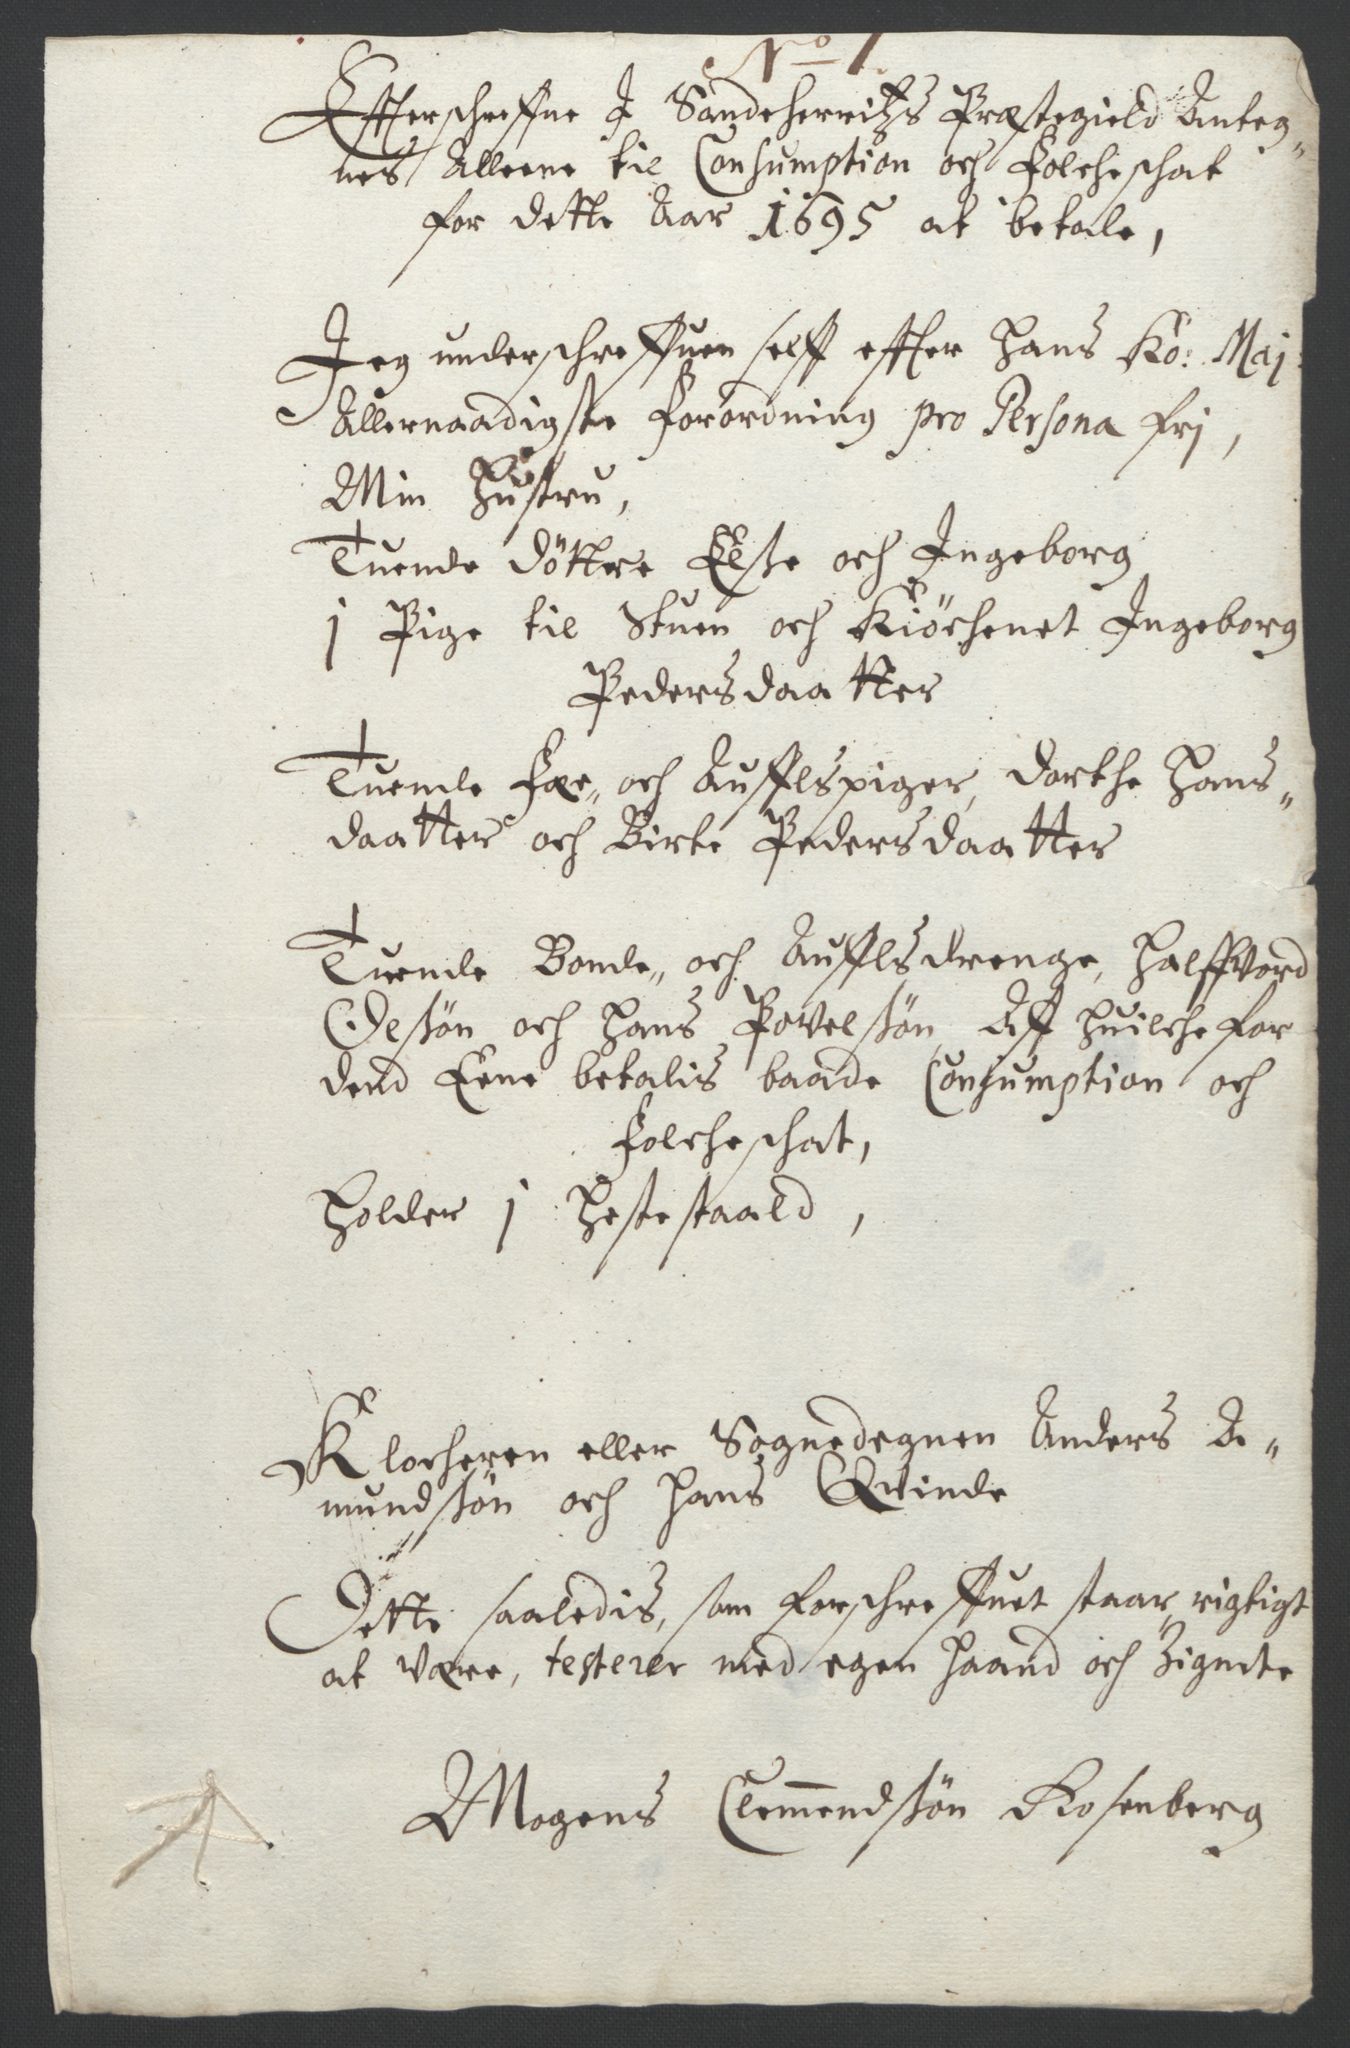 No 1
Effterschreffne I Sandeherritzs Præstegield Anteg„
nes Alleene til Consumption och Folcheschat
for dette Aar 1695 at betale,
Jeg underschreffuen self effter Hans Kö: Maj:
Allernaadigste Forordning pro Persona frj,
Min Hustru,
Tuende döttere Elsse och Ingeborg
1 Pige til Stuen och Kiöchenet Ingeborg
Pedersdaatter
Tuende Fæe„ och Auffelspiger, Dorthe Hans„
daatter och Birte Pedersdaatter
Tuende Bonde„ och Auffelsdrenge, Halffvord
Olssön och Hans Povelssön Aff huilche for
dend Eene betalis baade Consumption och
Folcheschat,
Holder 1 Hestestaald,
Klocheren eller Sognedegnen Anders A„
mundssön och Hans Qvinde
Dette saaledis, som forschreffuet staar, rigtigt
at være, testerer med egen Haand och Zignete
Mogens Clemmendssön Rosenberg